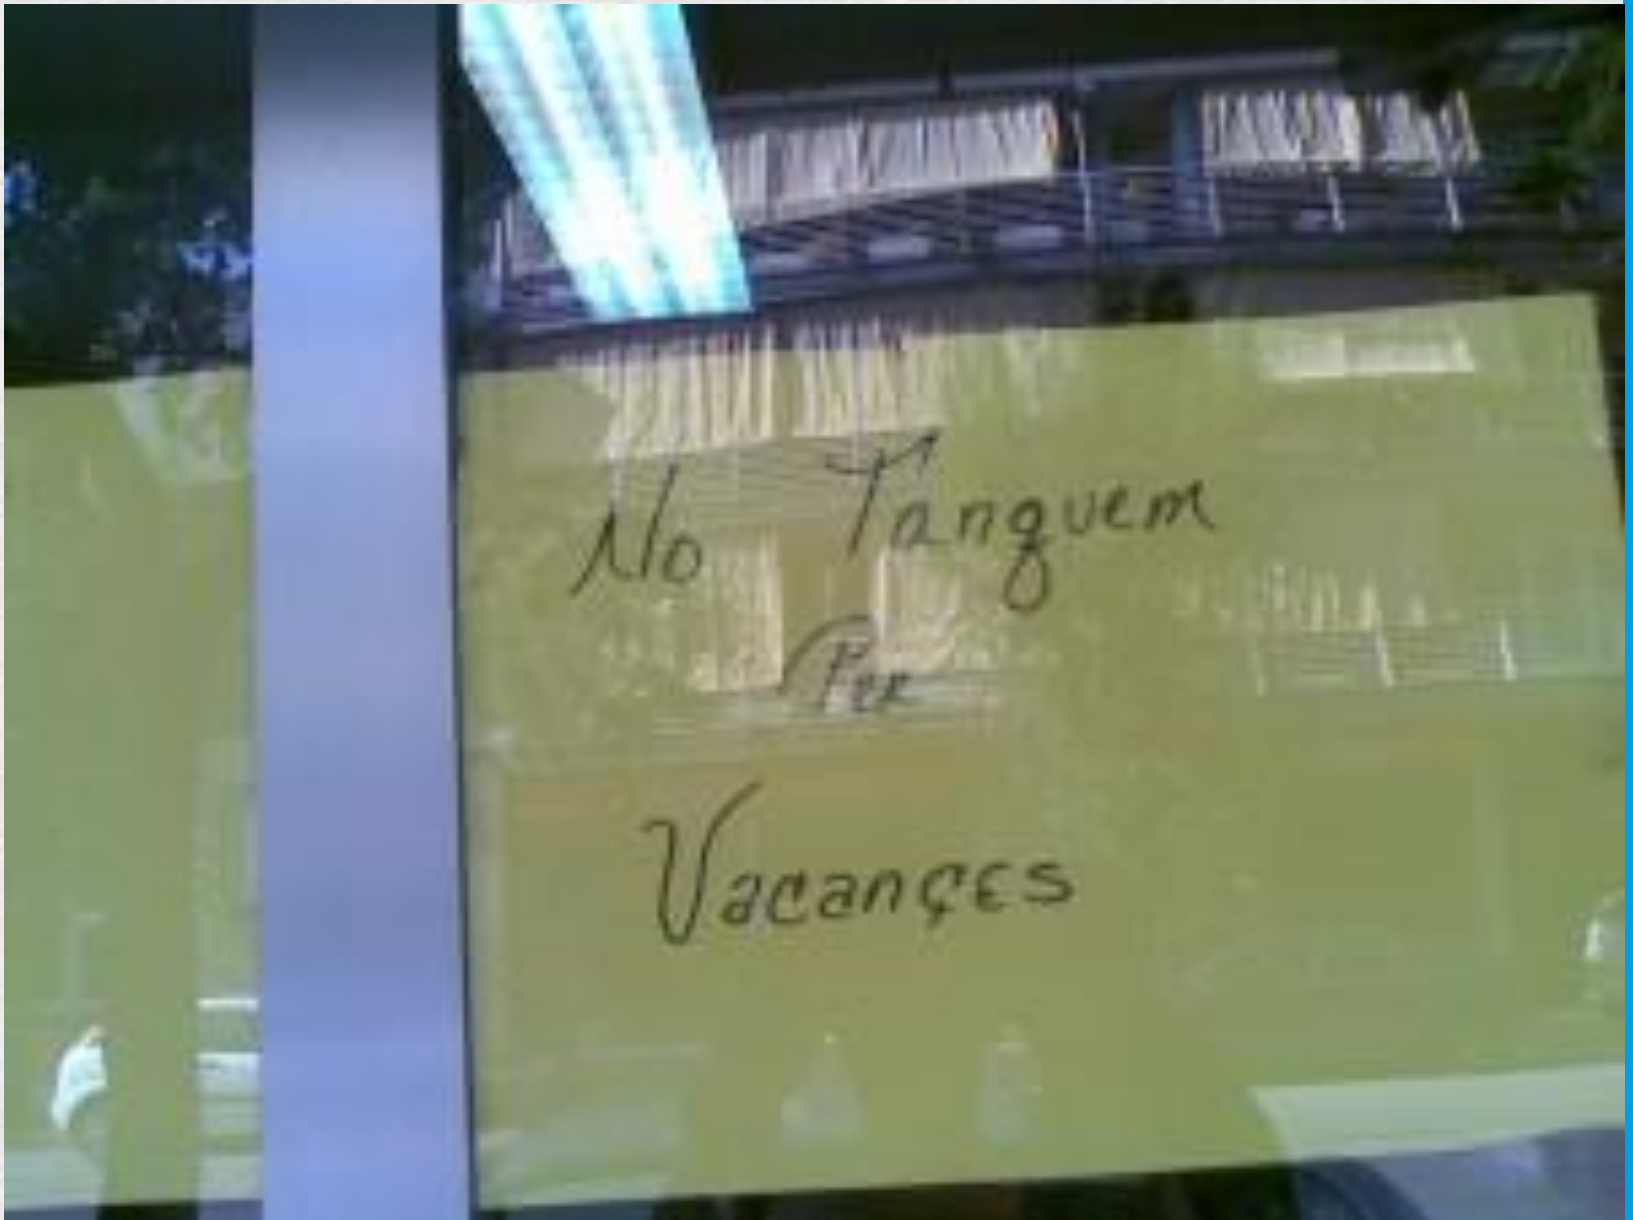 No Tanquem
Per
Vacançes